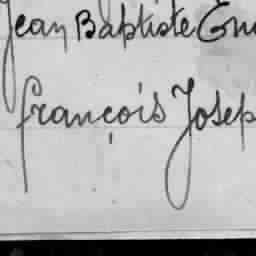 Jean Baptiste
françois Josep